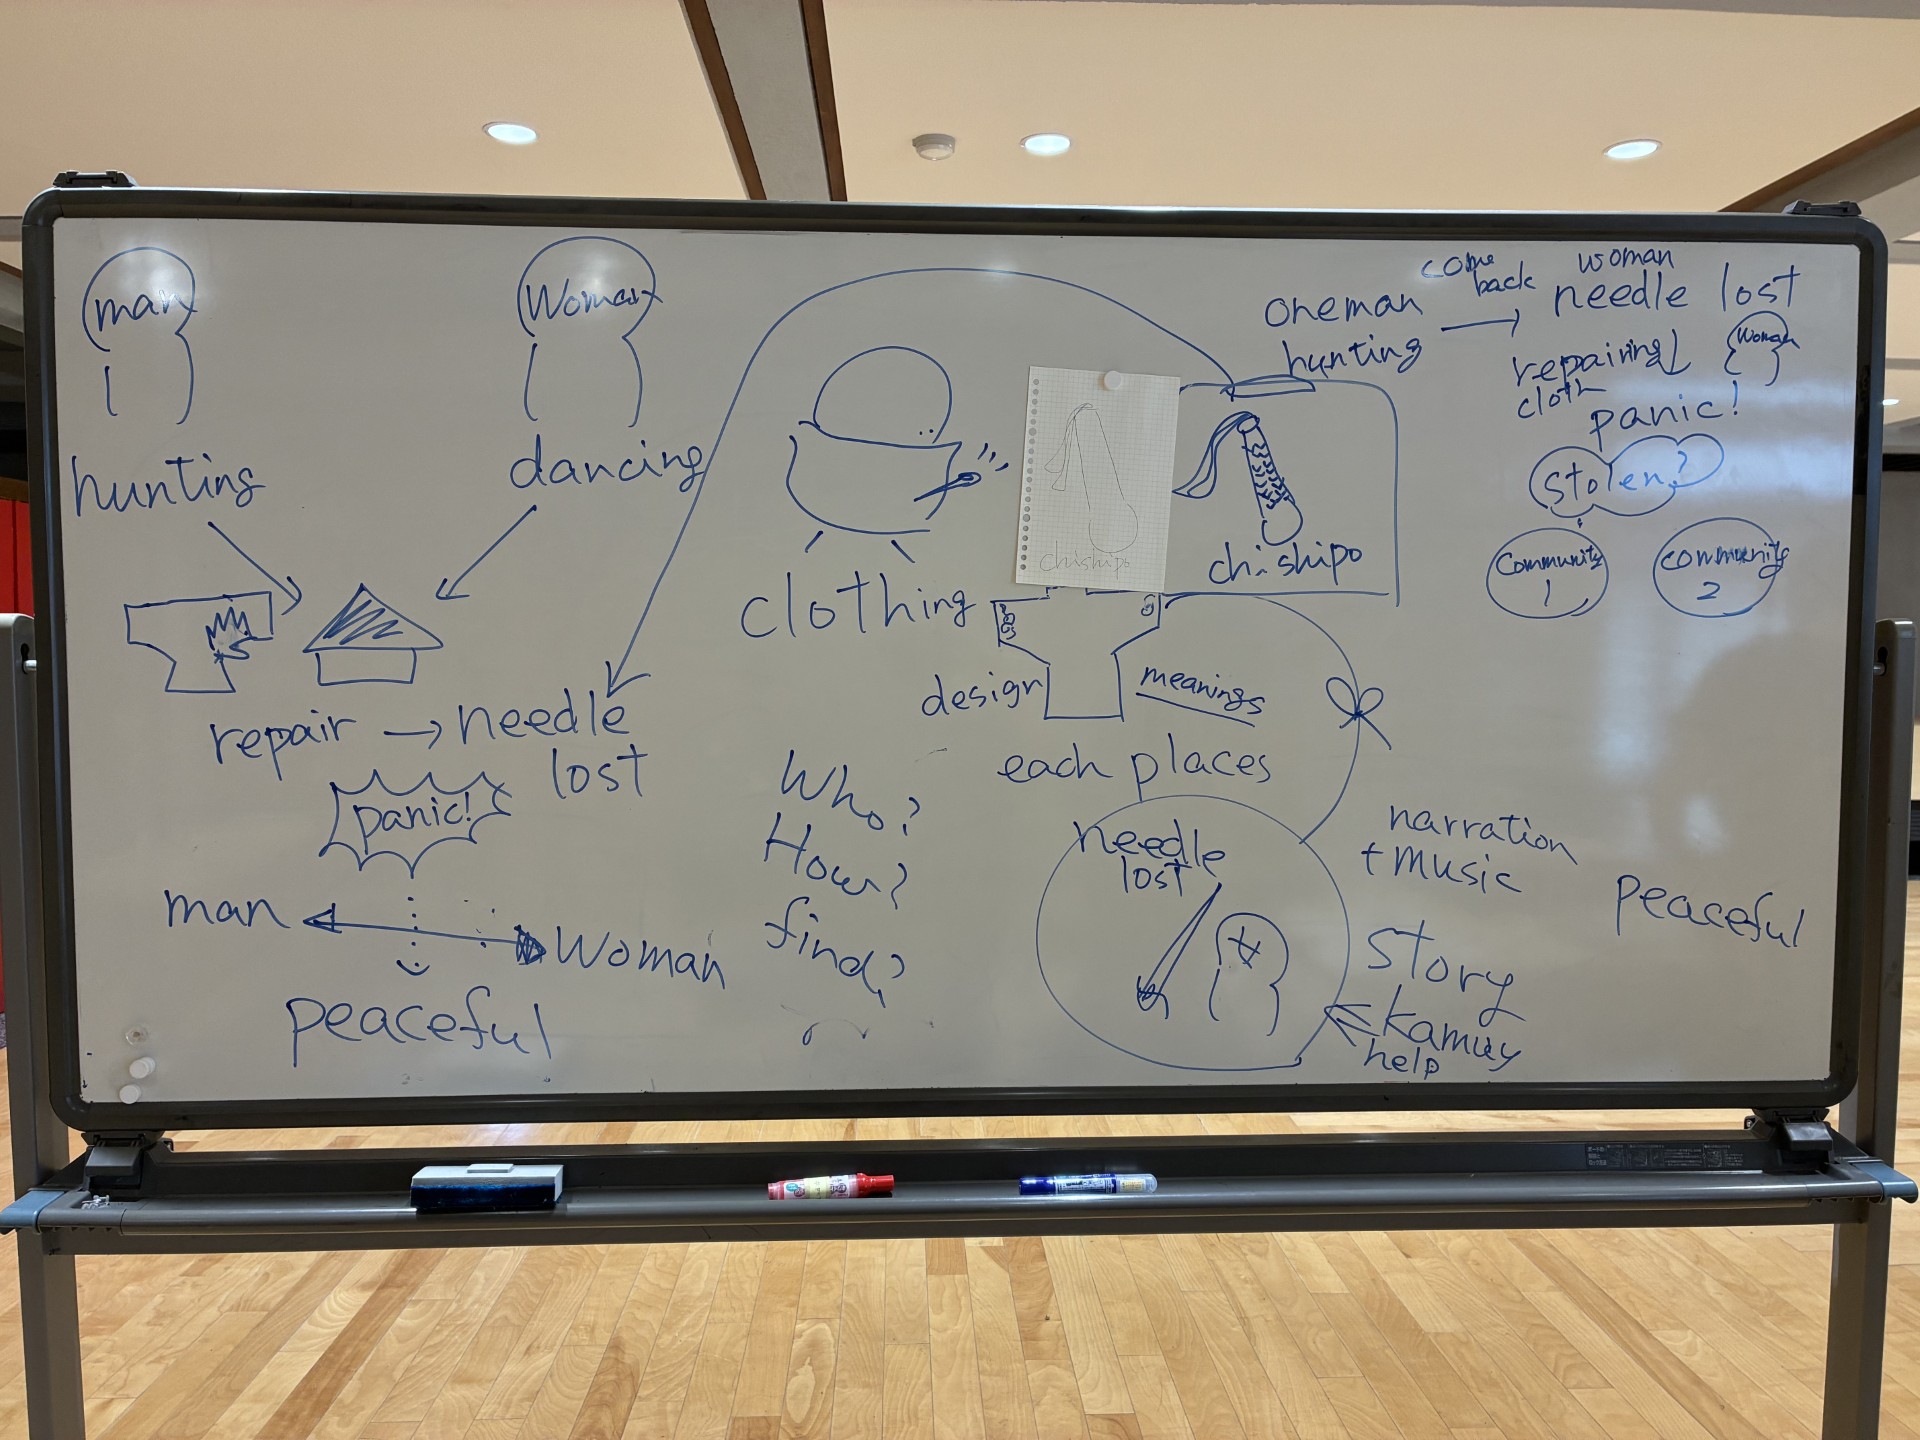 man
hunting
Woman
dancing
repair → needle
lost
panic!
man
Woman
peaceful
clothing
chishipo
chishipo
design
meanings
each places
Who?
How?
find?
needle
lost
oneman
hunting
come
back
woman
needle lost
repairing
cloth
Woman
panic!
stolen?
Community
1
community
2
narration
+ music
story
kamuy
help
peaceful